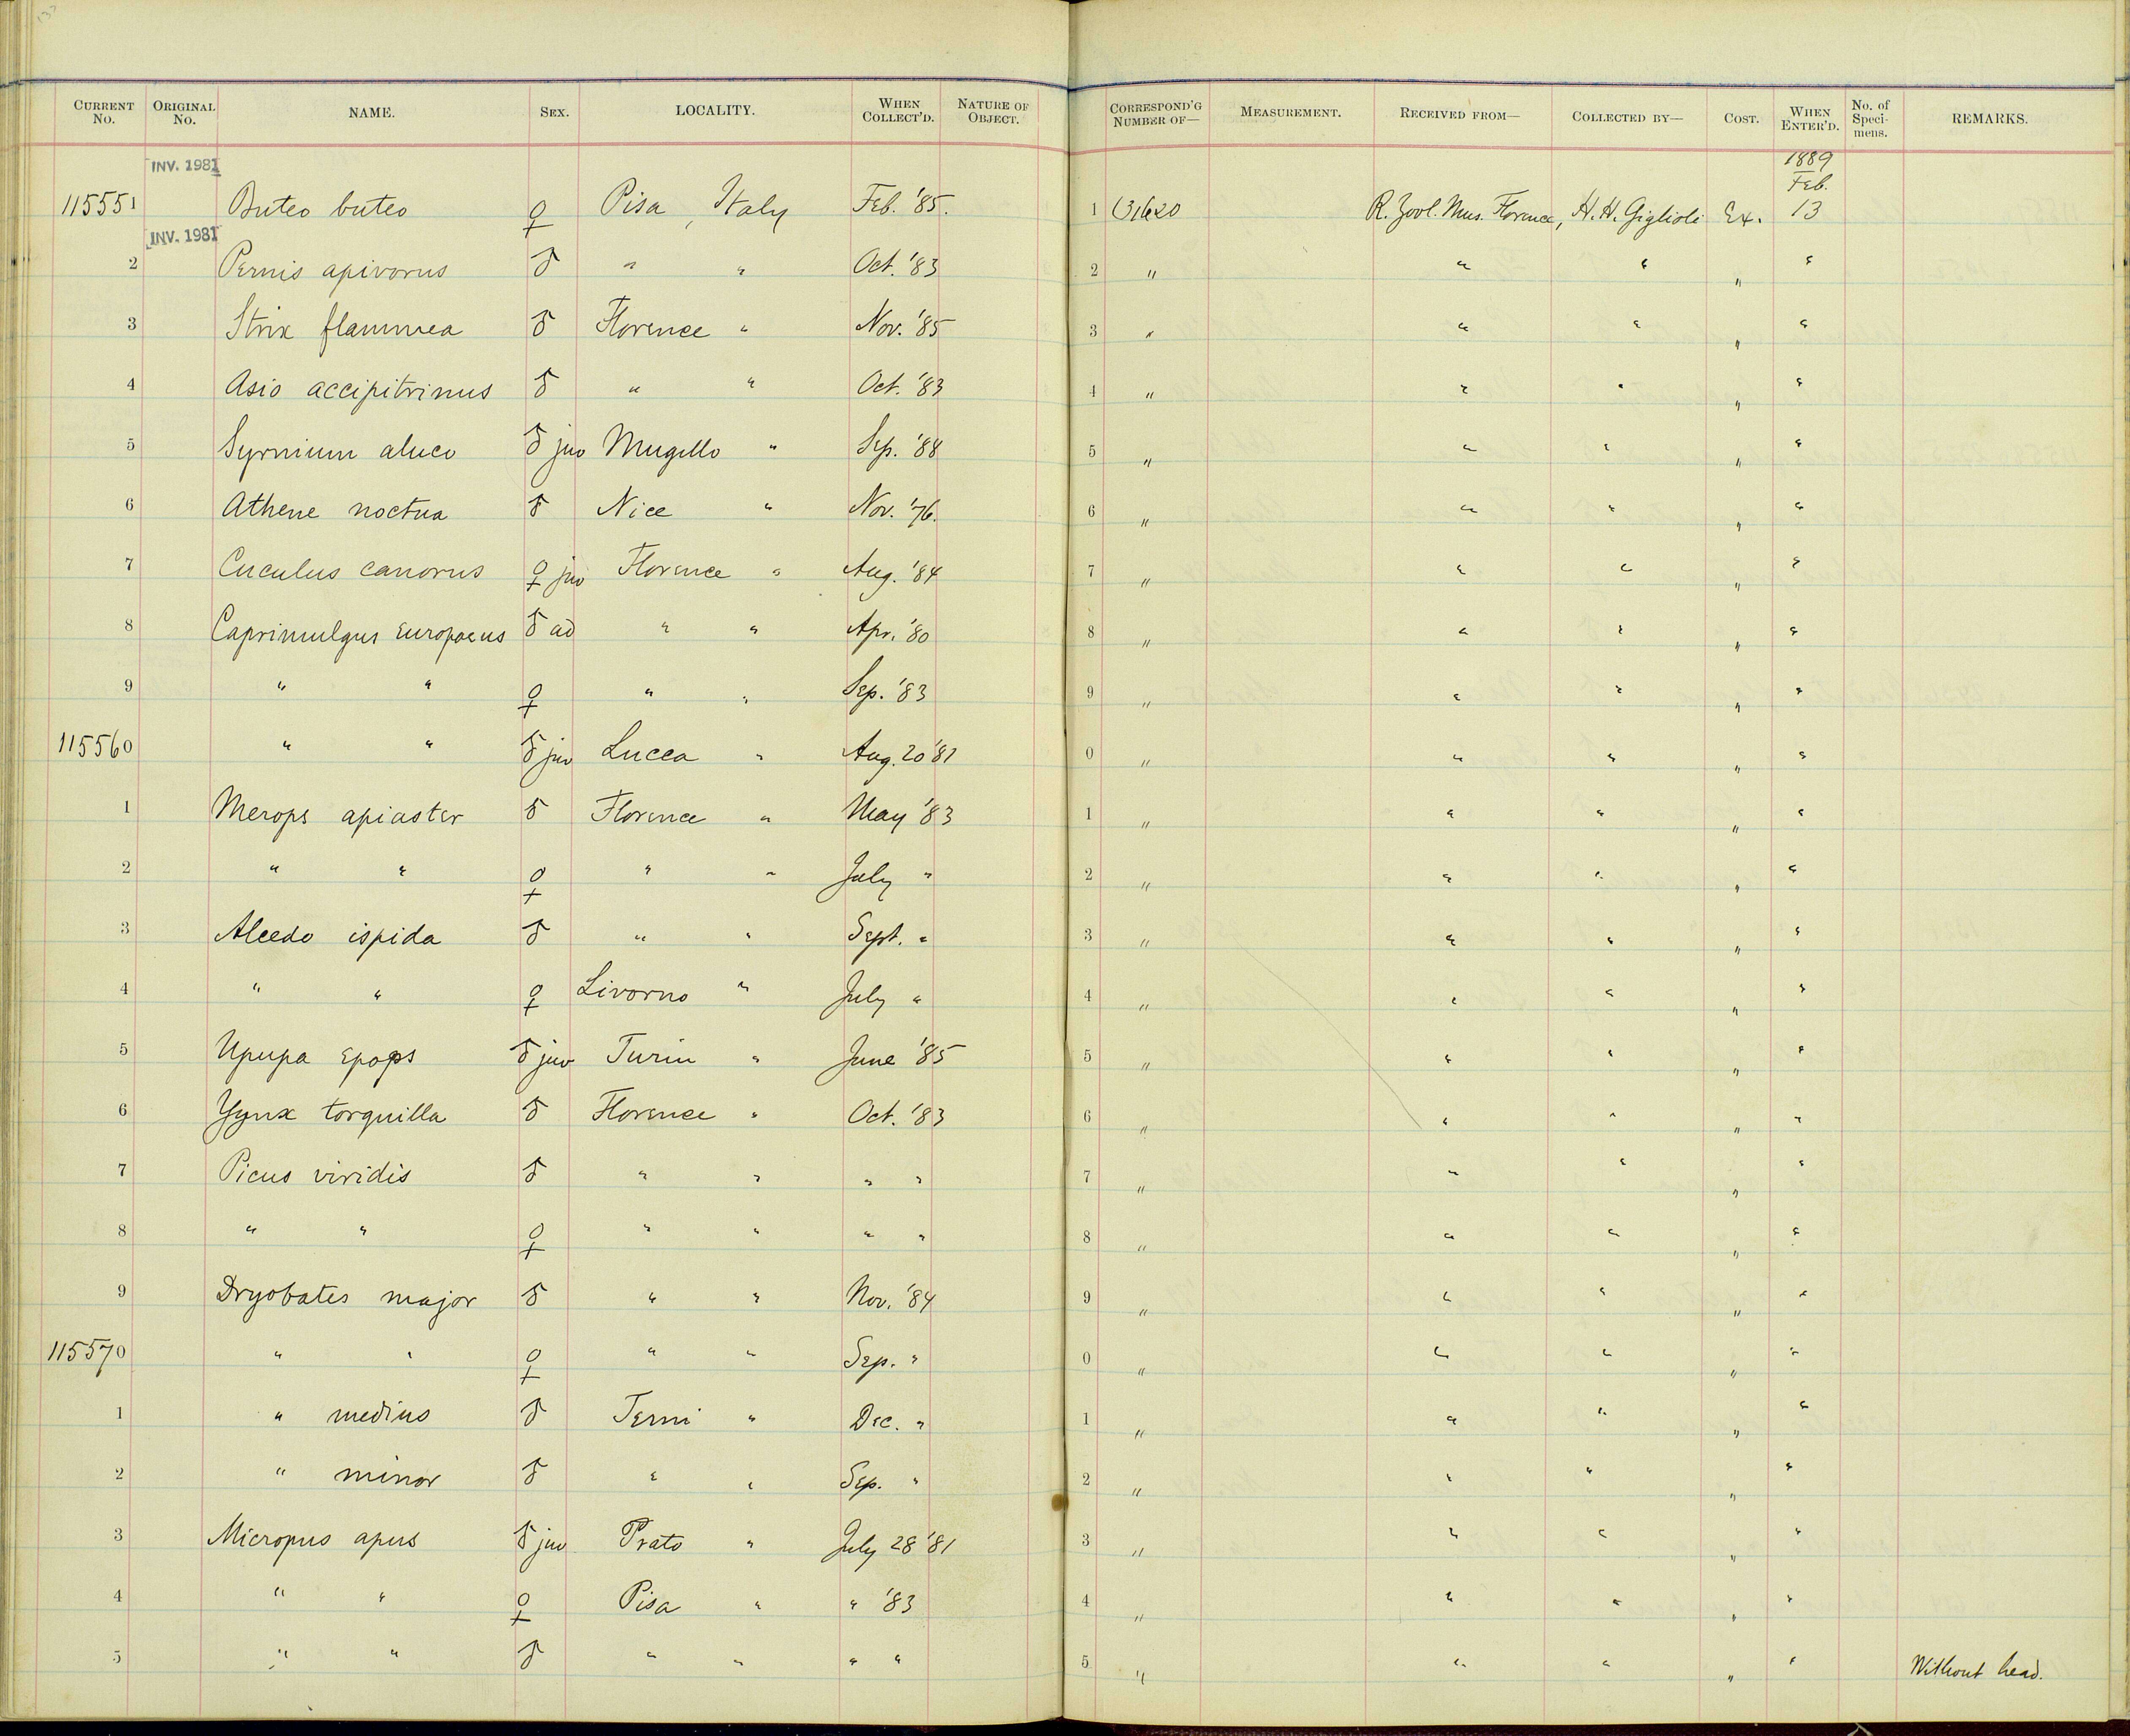 137
CURRENT No. ORIGINAL No. NAME. SEX. LOCALITY. WHEN COLLECT'D. NATURE OF OBJECT. CORRESPOND'G NUMBER OF— MEASUREMENT. RECEIVED FROM— COLLECTED BY— COST. WHEN ENTER'D. No. of Speci-mens. REMARKS.
INV. 1981 1889 Feb.
115551 Buteo buteo ♀ Pisa, Italy Feb. '85. 1 (31620 R. Zool. Mus. Florence, H. H. Giglioli Ex. 13
INV. 1981
2 Pernis apivorus ♂ " " Oct. '83 2 " " " " "
3 Strix flammea ♂ Florence " Nov. '85 3 " " " " "
4 Asio accipitrinus ♂ " " Oct. '83 4 " " " " "
5 Syrnium aluco ♂ juv Mugello " Sep. '88 5 " " " " "
6 Athene noctua ♂ Nice " Nov. '76. 6 " " " " "
7 Cuculus canorus ♀ juv Florence " Aug. '84 7 " " " " "
8 Caprimulgus europaeus ♂ ad " " Apr. '80 8 " " " " "
9 " " ♀ " " Sep. '83 9 " " " " "
115560 " " ♂ juv Lucca " Aug. 20 '81 0 " " " " "
1 Merops apiaster ♂ Florence " May '83 1 " " " " "
2 " " ♀ " " July " 2 " " " " "
3 Alcedo ispida ♂ " " Sept. " 3 " " " " "
4 " " ♀ Livorno " July " 4 " " " " "
5 Upupa epops ♂ juv Turin " June '85 5 " " " " "
6 Jynx torquilla ♂ Florence " Oct. '83 6 " " " " "
7 Picus viridis ♂ " " " " 7 " " " " "
8 " " ♀ " " " " 8 " " " " "
9 Dryobates major ♂ " " Nov. '84 9 " " " " "
115570 " " ♀ " " Sep. " 0 " " " " "
1 " medius ♂ Terni " Dec. " 1 " " " " "
2 " minor ♂ " " Sep. " 2 " " " " "
3 Micropus apus ♂ juv Prato " July 28 '81 3 " " " " "
4 " " ♀ Pisa " " '83 4 " " " " "
5 " " ♂ " " " " 5 " " " " " Without head.